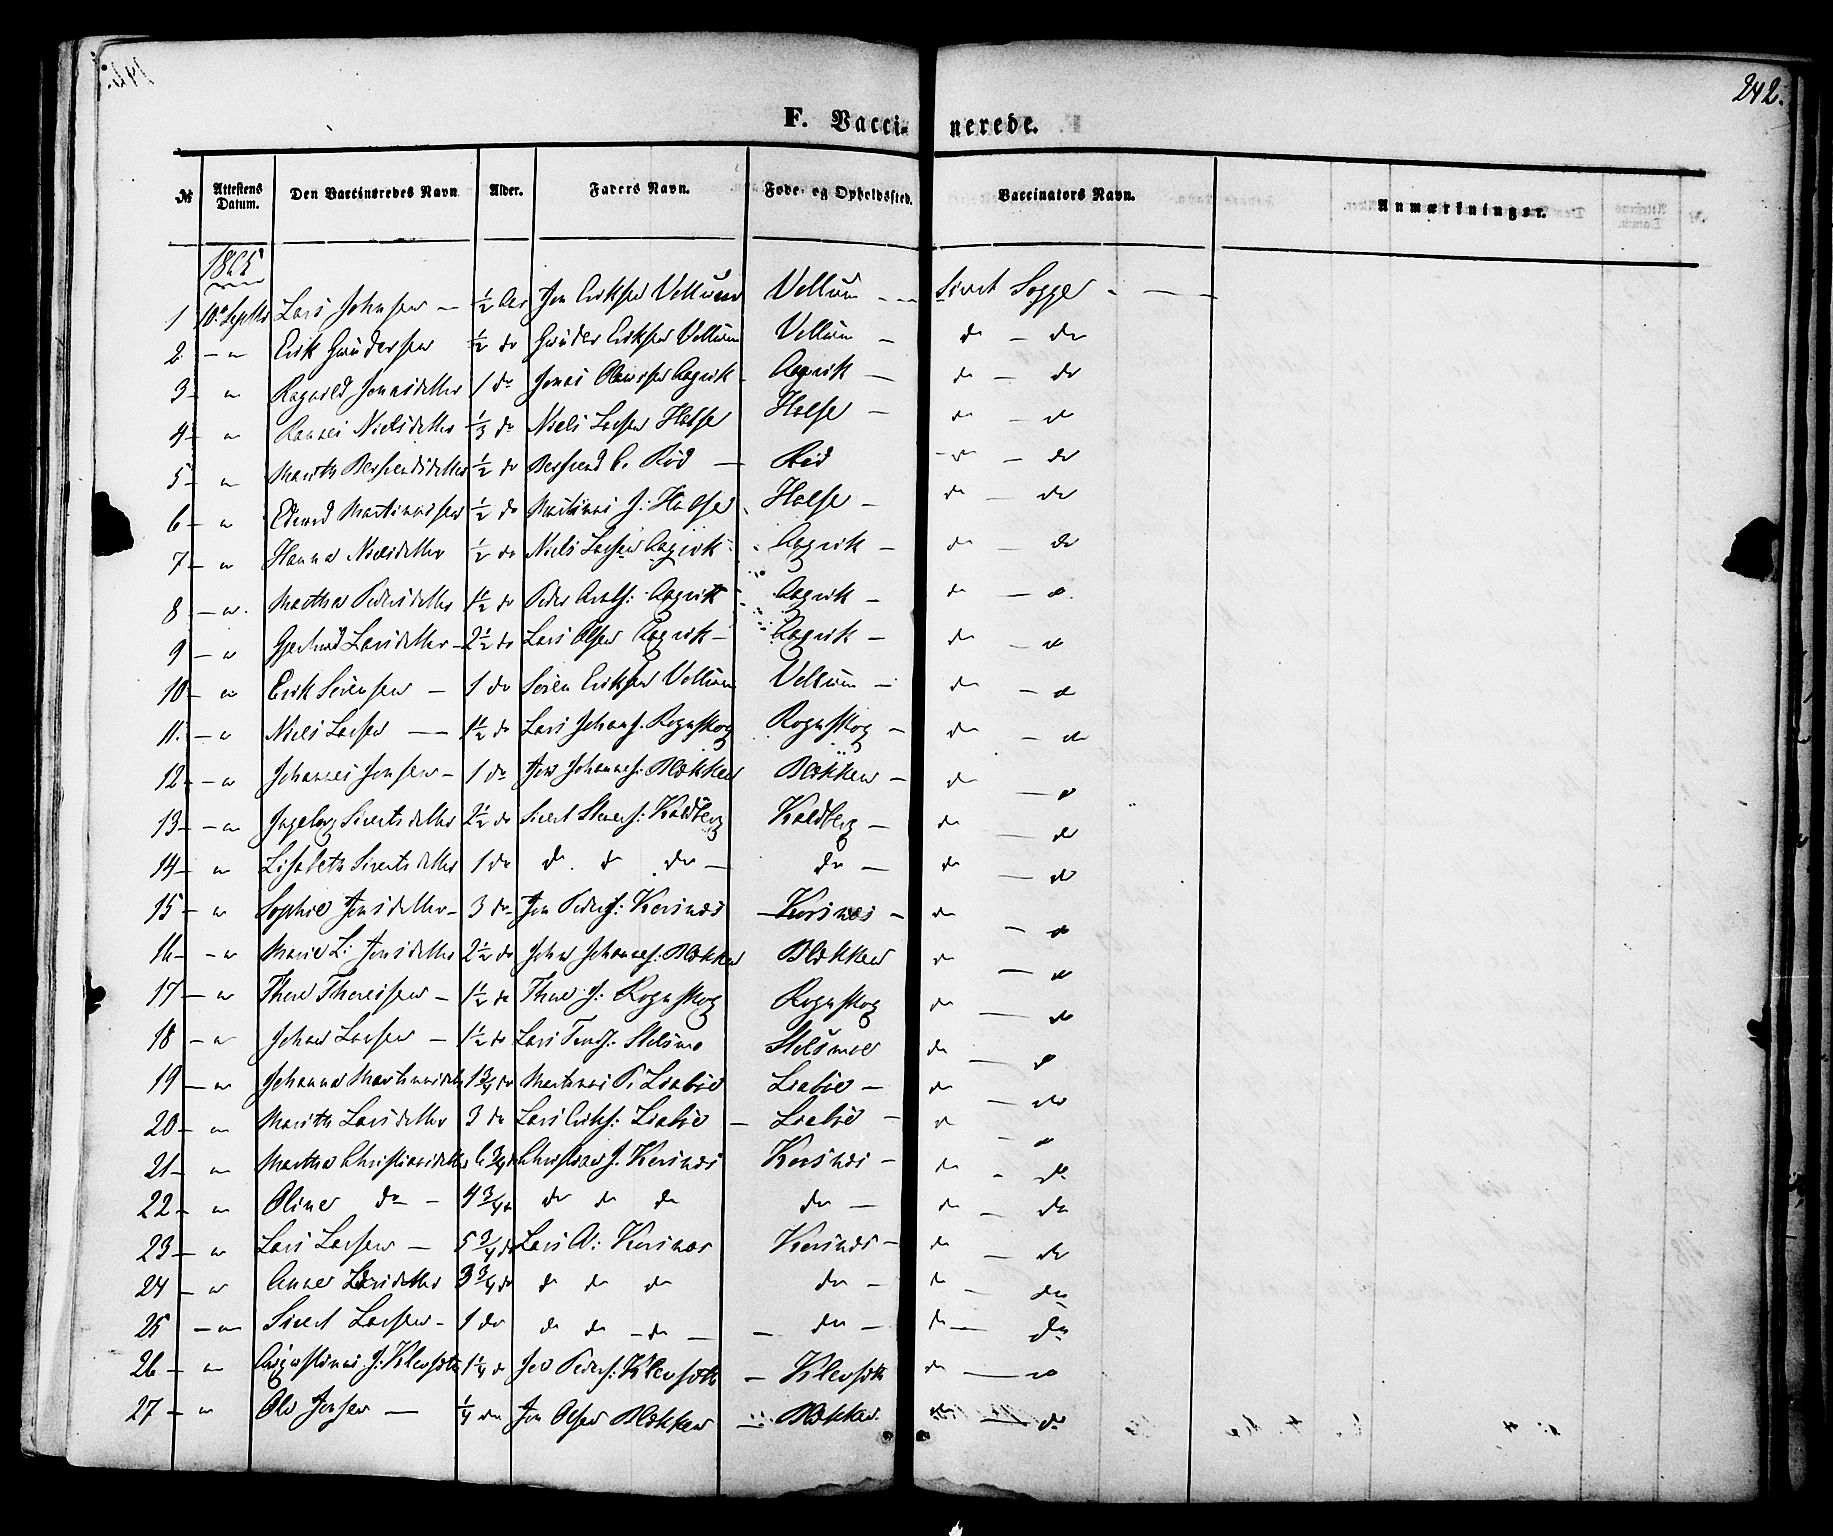 242.
F. Vaccinerede.
№ Attestens Datum. Den Vaccineredes Navn Alder. Faders Navn. Føde- og Opholdssted. Vaccinators Navn. Anmærkninger.
1865
1 10. Septbr Lars Johnsen — ½ Aar Jon Eriksen Vettum Vettum — Sivert Sogge - — -
2 - " Erik Gundersen ½ do Gunder Eriksen Vettum Vettum — do — do
3 - " Ragnild Jonasdatter 1 do Jonas Aagvik Aagvik — do — do
4 - " Nielsdatter ⅓ do Niels Larsen Halse Halse — do — do
5 - " Marith ½ do Rød — Rød — do
6 - " Edvard Martinussen ½ do Martinus J. Halse Halse — do — do
7 - " Hanna Nielsdatter ½ do Niels Larsen Aagvik Aagvik — do — do
8 - " Martha Pedersdatter 1½ do Peder Aagvik Aagvik — do — do
9 - " Gjertrud Larsdatter — 2½ do Lars Olsen Aagvik — Aagvik — do — do
10 - " Erik Sørensen — 1 do Søren Eriksen Vettum Vettum — do — do
11. - " Niels Larsen — 1½ do Lars Johans. Rognskog Rognskog — do — do
12 - " Johannes Jonsen — 1 do Jon Johannes: Blekken Blekken — do — do
13 - " Ingeborg Sivertsdatter 2½ do Sivert Koldberg Koldberg — do — do
14 - " Lisabeth Sivertsdatter 1 do do do do — do — do — do
15 - " Sophie Jonsdatter — 3 do Jon Peders: Korsnes Korsnes — do — do
16 - " Marie L: Jonsdatter 2½ do John Johannes. Blekken Blekken do — do
17 - " Thore Thoresen — 1½ do Thore J: Rognskog Rognskog do — do
18 - " Johan Larsen — 1½ do Lars Stelsmo Stelsmoe do — do
19 - " Johanna 1¾ do Martinus P. Liabøe Liabøe — do — do
20 - " Marith Larsdatter 3 do Lars Eriks: Liabøe — Liabøe — do — do
21 - " Martha Christiansdatter 6¾ do Christian J. Korsnes Korsnes — do — do
22 - " Oline do — 4¾ do do do do do — do — do
23 - " Lars Larsen — 5¾ do Lars A: Korsnes Korsnes — do — do
24 - " Anne Larsdatter 3¾ do do do do do — do — do
25 - " Sivert Larsen — 1 do do do — do — — do — do — do
26 - " J. Klevsæth 1¼ do Peders: Klevsæth — Klevsæth do — do
27 - " Ole Jonsen — ¼ do Jon Olsen Blekken — Blekken do — do